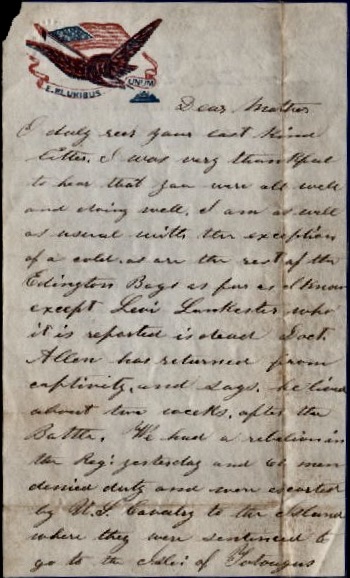 E. PLURIBUS UNUM
Dear Mother
I duly recv your last kind
letter. I was very thankful
to hear that you were all well
and doing well. I am as well
as usual with the exception
of a cold. as are the rest of the
Edington Boys as far as I know
except Levi Lankester who
it is reported is dead Doct.
Allen has returned from
captivity, and says. he lived
about two weeks. after the
Battle. We had a rebelion in
the Reg: yesterday and 61 men
denied duty and were escorted
by U.S. Cavalry to the Island
where they were sentenced to
go to the Isles of Tortugus